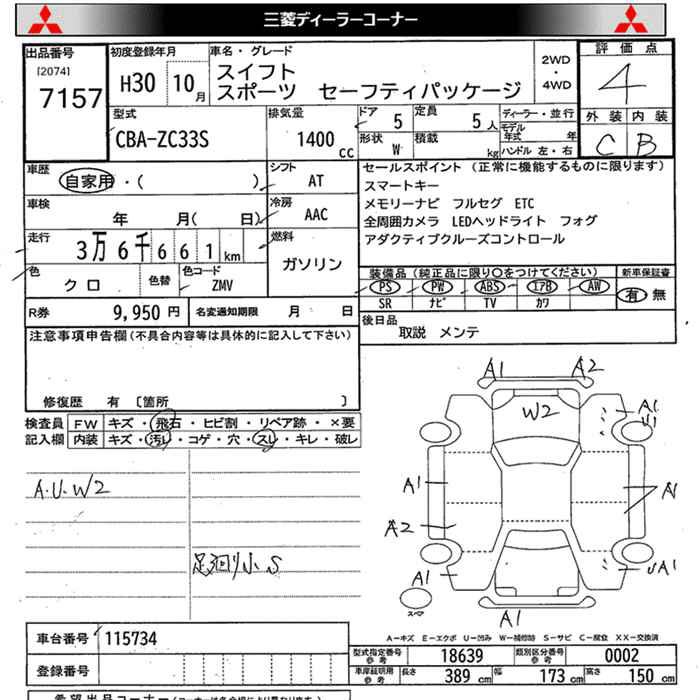 三菱ディーラーコーナー
出品番号 初度登録年月 車名・グレード 評価点
[2074]
7157
H30 10月
スイフト
スポーツ セーフティパッケージ
2WD
・
4WD
4
外装 内装
C B
型式 排気量 ドア 定員 ディーラー・並行
CBA-ZC33S 1400 cc 5 5人
モデル年式 年
形状 積載
W kg ハンドル 左・右
車歴 シフト セールスポイント (正常に機能するものに限ります)
自家用・( ) AT
スマートキー
メモリーナビ フルセグ ETC
全周囲カメラ LEDヘッドライト フォグ
アダクティブクルーズコントロール
車検 冷房
年 月( 日) AAC
走行 燃料
3万 6千 6 6 1 km ガソリン
色 色替 色コード
クロ ZMV
装備品(純正品に限り○をつけてください) 新車保証書
PS PW ABS エアB AW 有 無
SR ナビ TV カワ
R券 9,950 円 名変通知期限 月 日
後日品
取説 メンテ
注意事項申告欄(不具合内容等は具体的に記入して下さい)
修復歴 有 [箇所 ]
検査員 FW キズ・飛石・ヒビ割・リペア跡・×要
記入欄 内装 キズ・汚レ・コゲ・穴・スレ・キレ・破レ
A.U.W2
足回り小S
A1 A2
W2
A1
U1
A1
A1
A2
A1
UA1
スペア
A1
A-キズ E-エクボ U-凹み W-補修跡 S-サビ C-腐食 XX-交換済
車台番号 115734
登録番号
型式指定番号 参考 18639 類別区分番号 参考 0002
車庫証明用 参考 長さ 389 cm 幅 173 cm 高さ 150 cm
希望出品コーナー